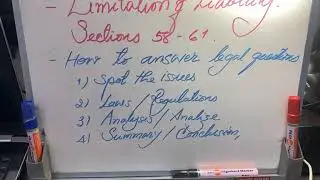 - Limitation of Liability.
Sections 58 - 61.
- How to answer legal questions
1) Spot the issues
2) Laws / Regulations
3) Analysis / Analise
4) Summary / Conclusion,